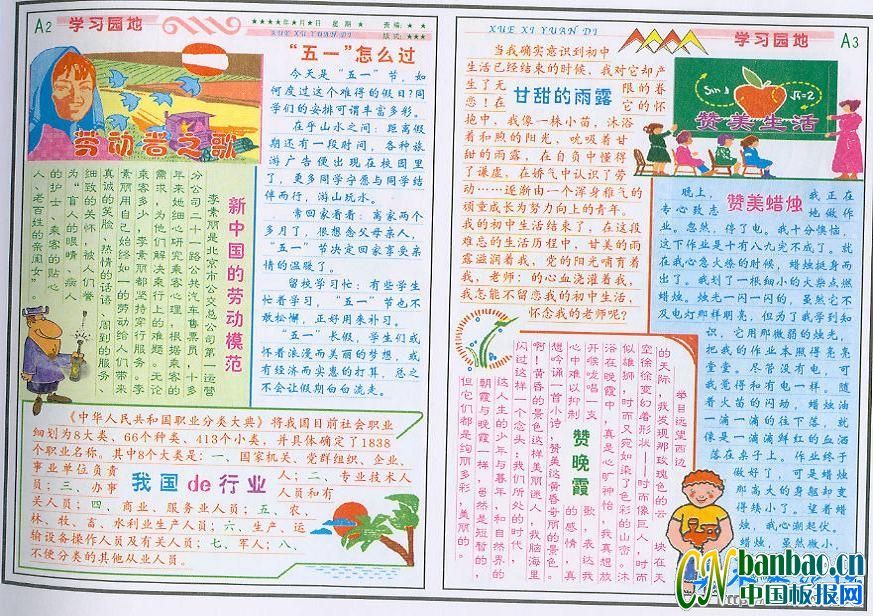 A2
学习园地
★★★★年★月★日 星期 ★
责编：★ ★
版式：★★★
XUE XI YUAN DI
劳动者之歌
“五一”怎么过
今天是“五一”节，如
何度过这个难得的假日？同
学们的安排可谓丰富多彩。
在乎山水之间：距离假
期还有一段时间，各种旅
游广告便出现在校园里
了，更多同学宁愿与同学结
伴而行，游山玩水。
常回家看看：离家两个
多月了，很想念父母亲人，
“五一”节决定回家享受亲
情的温暖了。
留校学习忙：有些学生
忙着学习，“五一”节也不
敢松懈，正好用来补习。
“五一”长假，学生们或
怀着浪漫而美丽的梦想，或
有经济而实惠的打算，总之
不会让假期白白流走。
新中国的劳动模范
李素丽是北京市公交总公司第一运营
分公司二十一路公共汽车售票员，十多
年来她细心研究乘客心理，根据乘客的
需求，为他们解决乘行上的难题。无论
乘客多少，李素丽都坚持穿行服务。李
素丽用自己始终如一的劳动给人们带来
真诚的笑脸、热情的话语、周到的服务、
细致的关怀，被人们誉
为“盲人的眼睛、病人
的护士、乘客的贴心
人、老百姓的亲闺女”。
《中华人民共和国职业分类大典》将我国目前社会职业
细划为8大类、66个种类、413个小类，并具体确定了1838
个职业名称。其中8个大类是：一、国家机关、党群组织、企业、
事业单位负责
人；二、专业技术人
员；三、办事
人员和有
我国de行业
关人员；四、商业、服务业人员；五、农、
林、牧、畜、水利业生产人员；六、生产、运
输设备操作人员及有关人员；七、军人；八、
不便分类的其他从业人员。
XUE XI YUAN DI
学习园地
A3
当我确实意识到初中
生活已经结束的时候，我对它却产
生了无
限的眷
恋！在
它的怀
甘甜的雨露
抱中，我像一株小苗，沐浴
着和煦的阳光，吮吸着甘
甜的雨露，在自负中懂得
了谦虚，在娇气中认识了劳
动……逐渐由一个浑身稚气的
顽童成长为努力向上的青年。
我的初中生活结束了，在这段
难忘的生活历程中，甘美的雨
露滋润着我，党的阳光哺育着
我，老师：的心血浇灌着我，
我怎能不留恋我的初中生活，
怀念我的老师呢？
Sin
√=2
赞美生活
赞美蜡烛
晚上，
我正在
专心致志
地做作
业。忽然，停了电。我十分懊恼，
这下作业是十有八九完不成了。就
在我心急火燎的时候，蜡烛挺身而
出了。我划了一根细小的火柴点燃
蜡烛。烛光一闪一闪的，虽然它不
及电灯那样明亮，但为了我学到知
识，它用那微弱的烛光，
把我的作业本照得亮亮
堂堂。尽管没有电，可
我觉得和有电一样。随
着火苗的闪动，蜡烛油
一滴一滴的往下落，就
像是一滴滴鲜红的血洒
落在桌子上。作业终于
做好了，可是蜡烛
那高大的身躯却变
得矮小了。望着蜡
烛，我心潮起伏。
蜡烛，虽然微小，
赞晚霞
举目远望西边
的天际，我发现那玫瑰色的云
块在天
空徐徐变幻着形状——时而像巨人，时而
似雄狮，时而又宛如染了色彩的山峦。沐
浴在晚霞中，真是心旷神怡，我真想放
开喉咙唱一支
歌，表达我
心中难以抑制
的感情，真
想吟诵一首小诗，赞美这黄昏奇丽的景色
啊！黄昏的景色这样美丽迷人，我脑海里
闪过这样一个念头：我们所处的时代，
这人生的少年与暮年，和自然界的
朝霞与晚霞一样，虽然是短暂的，
但它们都是绚丽多彩，美丽的。
CN banbao.cn
中国板报网